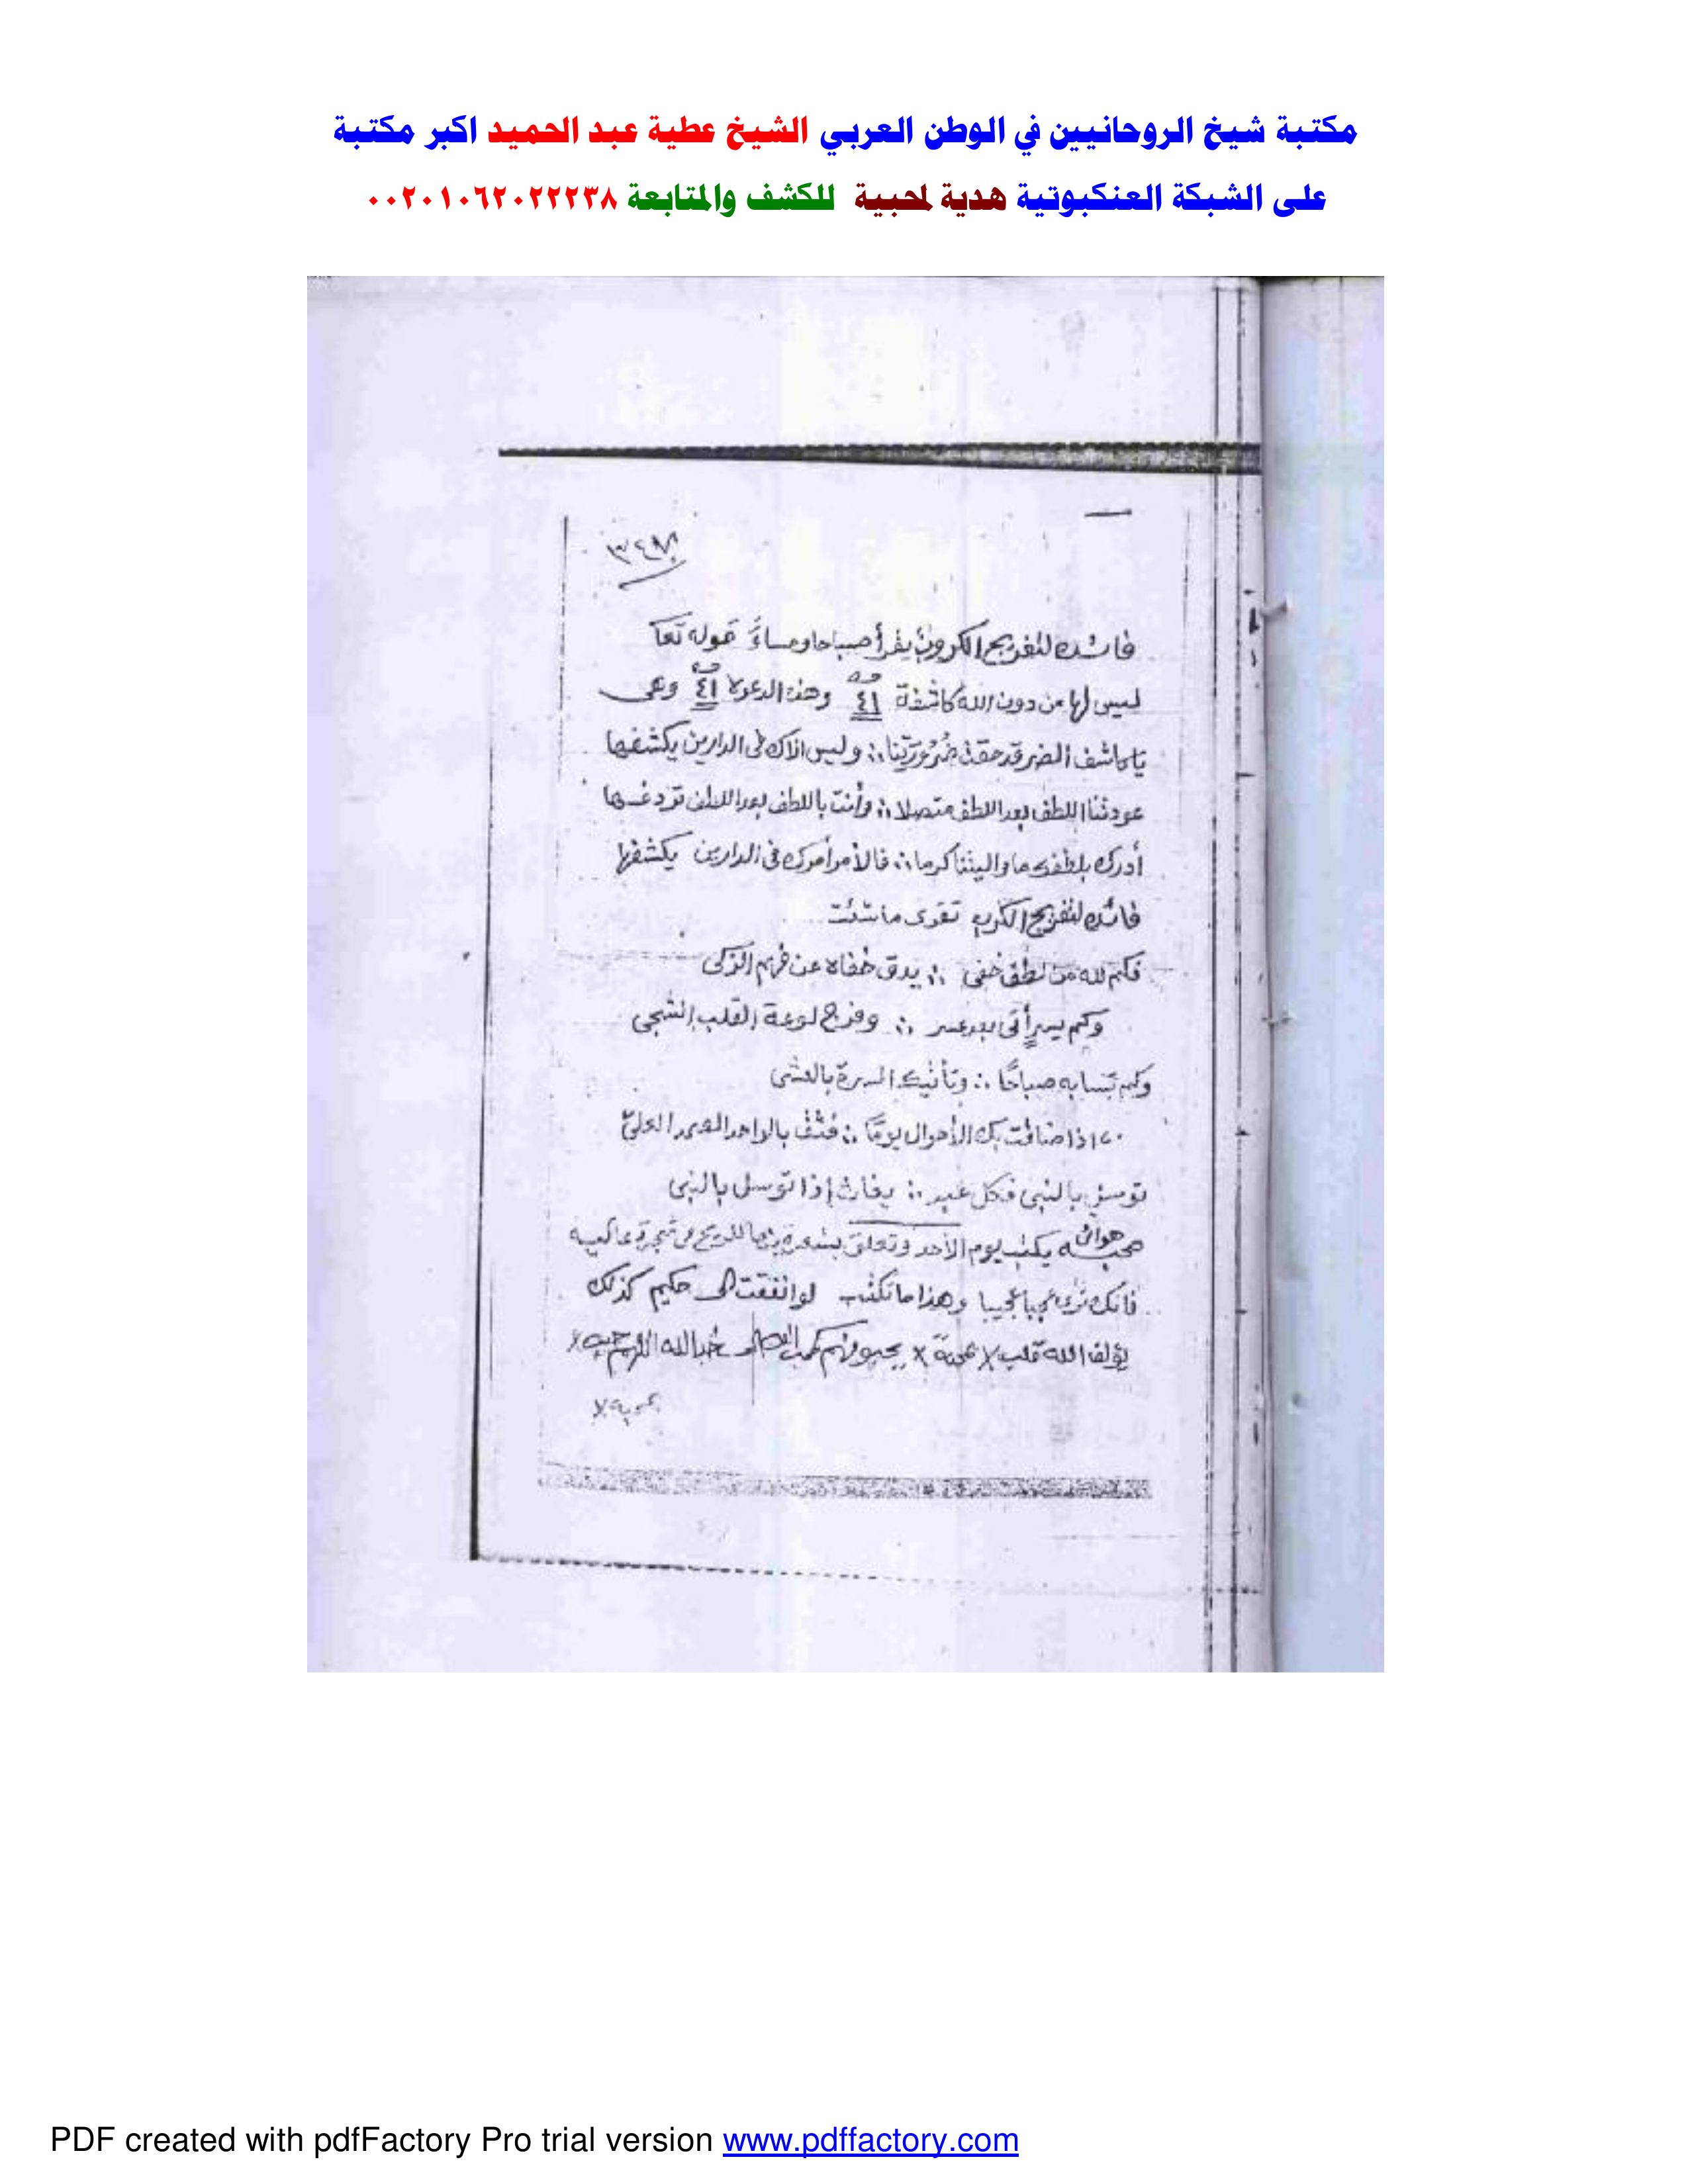 مكتبة شيخ الروحانيين في الوطن العربي الشيخ عطية عبد الحميد اكبر مكتبة
على الشبكة العنكبوتية هدية لمحبية للكشف والمتابعة ٠٠٢٠١٠٦٢٠٢٢٢٣٨
فائده لتفريج الكروب يقرأ صباحا ومساءً قوله تعا
ليس لها من دون الله كاشفة ٤١ وهذه الدعوة ٤١ وهى
يا كاشف الضر قد حقت ضرورتنا ∴ وليس الاك فى الدارين يكشفها
عودتنا اللطف بعد اللطف متصلا ∴ وأنت باللطف بعد اللطف تردفها
أدرك بلطفك ما واليتنا كرما ∴ فالأمر أمرك فى الدارين يكشفها
فائده لتفريج الكرب تقرى ما شئت
فكم لله من لطف خفى ∴ يدق خفاه عن فهم الذكى
وكم يسرٍ أتى بعد عسر ∴ وفرج لوعة القلب الشجى
وكم تسا به صباحًا ∴ وتأتيك المسرة بالعشى
اذا ضاقت بك الأحوال يومًا ∴ فثق بالواحد الصمد العلىّ
توسل بالنبى فكل عبد ∴ يغاث إذا توسل بالنبى
يكتب يوم الأحد وتعلق للريح فى شجرة عاليه
فانك ترى عجبا عجيبا وهذا ما تكتب لو انفقت الى حكيم كذلك
يؤلف الله قلب محبة يحبونهم كحب الله